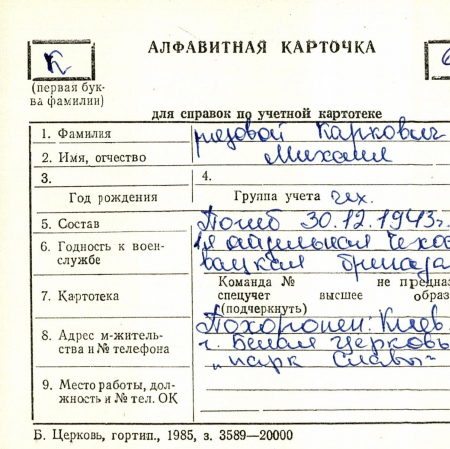 АЛФАВИТНАЯ КАРТОЧКА
К
(первая бук-
ва фамилии)
для справок по учетной картотеке
1. Фамилия рядовой Каркович
2. Имя, отчество Михаил
3. 4.
Год рождения Группа учета чех.
5. Состав Погиб 30.12.1943г.
6. Годность к воен-
службе
1я отдельная Чехос
вацкая бригада
7. Картотека
Команда № не предназ
спецучет высшее образ
(подчеркнуть)
8. Адрес м-житель-
ства и № телефона
Похоронен: Киев.
г. Белая Церковь
„парк Славы"
9. Место работы, дол-
жность и № тел. ОК
Б. Церковь, гортип., 1985, з. 3589—20000